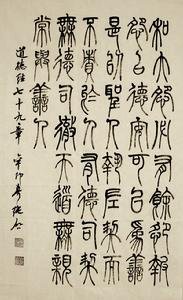 和大怨必有餘怨報
怨以德安可以為善
是以聖人執左契而
不責於人有德司契
無德司徹天道無親
常與善人
道德經七十九章 辛卯